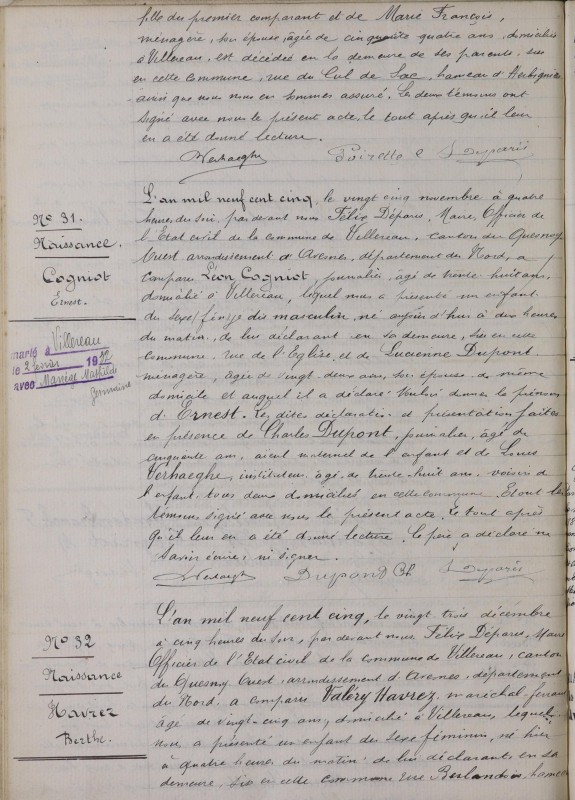 fille du premier comparant et de Marie François,
ménagère, son épouse, âgée de cinquante quatre ans, domiciliés
à Villereau, est décédée en la demeure de ses parents, sise
en cette commune, rue du Cul de Sac, hameau d'Herbignies
ainsi que nous nous en sommes assuré. Les deux témoins ont
signé avec nous le présent acte, le tout après qu'il leur
en a été donné lecture.
Verhaeghe
F. Déparis
No 31.
Naissance.
Cogniot
Ernest.
marié à Villereau
le 2 février 1932
avec Mathilde
Germaine
L'an mil neuf cent cinq, le vingt cinq novembre à quatre
heures du soir, par devant nous Félix Déparis, Maire, Officier de
l'Etat civil de la commune de Villereau, canton du Quesnoy
Ouest arrondissement d'Avesnes, département du Nord, a
comparu Léon Cogniot, journalier, âgé de trente huit ans,
domicilié à Villereau, lequel nous a présenté un enfant
du sexe masculin, né aujourd'hui à deux heures
du matin, de lui déclarant en sa demeure, sise en cette
commune, rue de l'Eglise, et de Lucienne Dupont
ménagère, âgée de vingt deux ans, son épouse de même
domicile et auquel il a déclaré vouloir donner le prénom
d'Ernest. Les dites déclaration et présentation faites
en présence de Charles Dupont, journalier, âgé de
cinquante ans, aïeul maternel de l'enfant et de Louis
Verhaeghe, instituteur, âgé de trente huit ans, voisin de
l'enfant, tous deux domiciliés en cette commune. Et ont les
témoins signé avec nous le présent acte, le tout après
qu'il leur en a été donné lecture, le père a déclaré ne
savoir écrire, ni signer.
Verhaeghe Dupond Ch. F. Déparis
No 32
Naissance
Havrez
Berthe.
L'an mil neuf cent cinq, le vingt trois décembre
à cinq heures du soir, par devant nous Félix Déparis, Maire
Officier de l'Etat civil de la commune de Villereau, canton
du Quesnoy Ouest, arrondissement d'Avesnes, département
du Nord a comparu Valéry Havrez, maréchal-ferrant
âgé de vingt-cinq ans, domicilié à Villereau, lequel
nous a présenté un enfant du sexe féminin, né hier
à quatre heures du matin, de lui déclarant en sa
demeure, sise en cette commune rue hameau